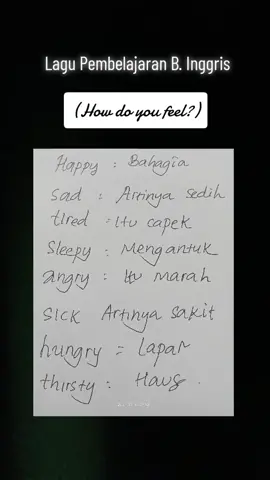 Lagu Pembelajaran B. Inggris
(How do you feel?)
Happy : Bahagia
Sad : Artinya sedih
tired = itu capek
Sleepy : Mengantuk
angry : Itu marah
SICK Artinya sakit
hungry = Lapar
thirsty : Haus .